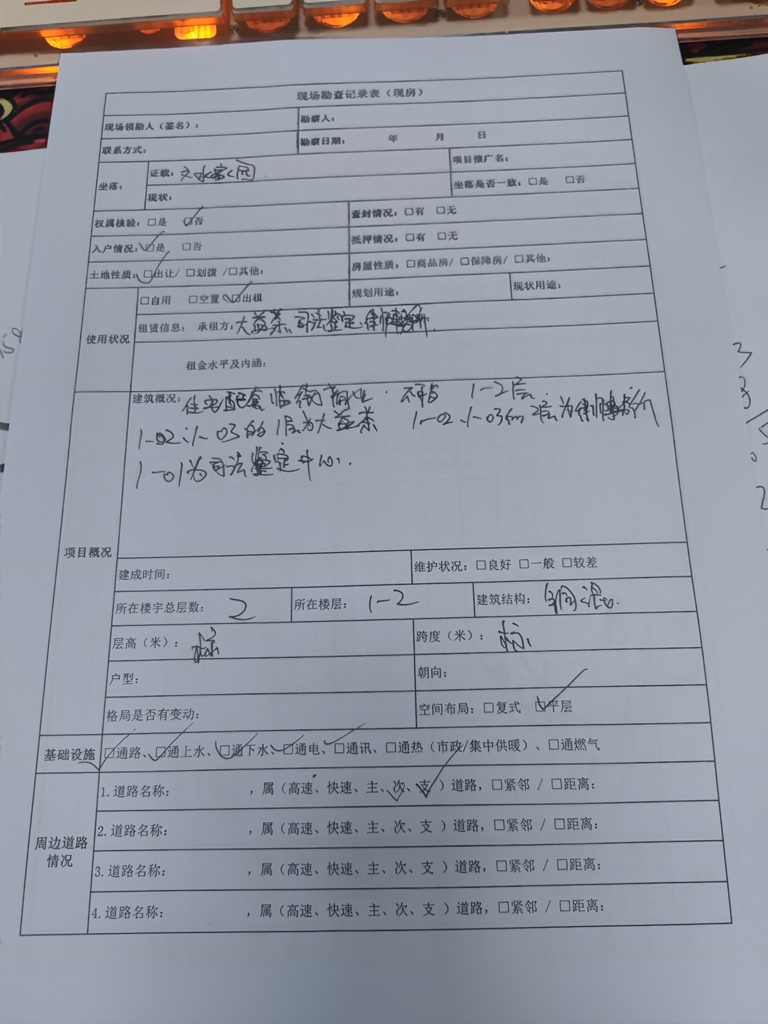 现场勘查记录表（现房）
现场领勘人（签名）： 勘察人：
联系方式： 勘察日期： 年 月 日
坐落： 证载：文水家园 项目推广名：
现状： 坐落是否一致：□是 □否
权属核验：□是 ☑否 查封情况：□有 □无
入户情况：☑是 □否 抵押情况：□有 □无
土地性质：☑出让/ □划拨 /□其他： 房屋性质：□商品房/ □保障房/ □其他：
使用状况 □自用 □空置 ☑出租 规划用途： 现状用途：
租赁信息： 承租方：大益茶、司法鉴定、律师事务所
租金水平及内涵：
项目概况 建筑概况：住宅配套临街商业. 1-2层
1-02、1-03的1层为大益茶 1-02、1-03的2层为律师事务所
1-01为司法鉴定中心.
建成时间： 维护状况：□良好 □一般 □较差
所在楼宇总层数：2 所在楼层：1-2 建筑结构：钢混.
层高（米）：标 跨度（米）：标
户型： 朝向：
格局是否有变动： 空间布局：□复式 ☑平层
基础设施 ☑通路、☑通上水、☑通下水、☑通电、☑通讯、□通热（市政/集中供暖）、□通燃气
周边道路情况 1.道路名称： ，属（高速、快速、主、次、支）道路，□紧邻 / □距离：
2.道路名称： ，属（高速、快速、主、次、支 ）道路，□紧邻 / □距离：
3.道路名称： ，属（高速、快速、主、次、支 ）道路，□紧邻 / □距离：
4.道路名称： ，属（高速、快速、主、次、支 ）道路，□紧邻 / □距离：